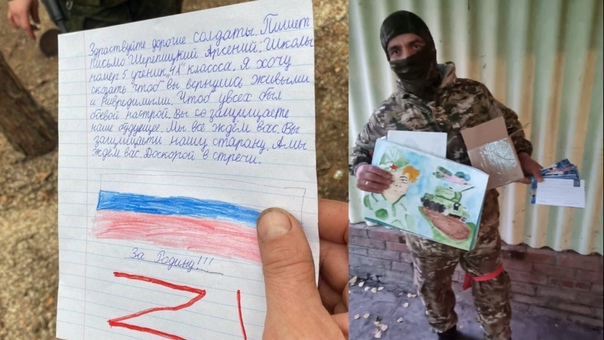 Здраствуйте дорогие солдаты. Пишет
письмо Шерепицкий Арсений. Школы
номер 5 ученик 4"А" класса. Я хочу
сказать чтоб вы вернулись живыми
и невредимыми. Чтоб у всех был
боевой настрой. Вы защищаете
наше будующее. Мы все ждём вас. Вы
защищаети нашу старану. А мы
ждём вас. Доскорой в стречи.
За Родину!!!
Z